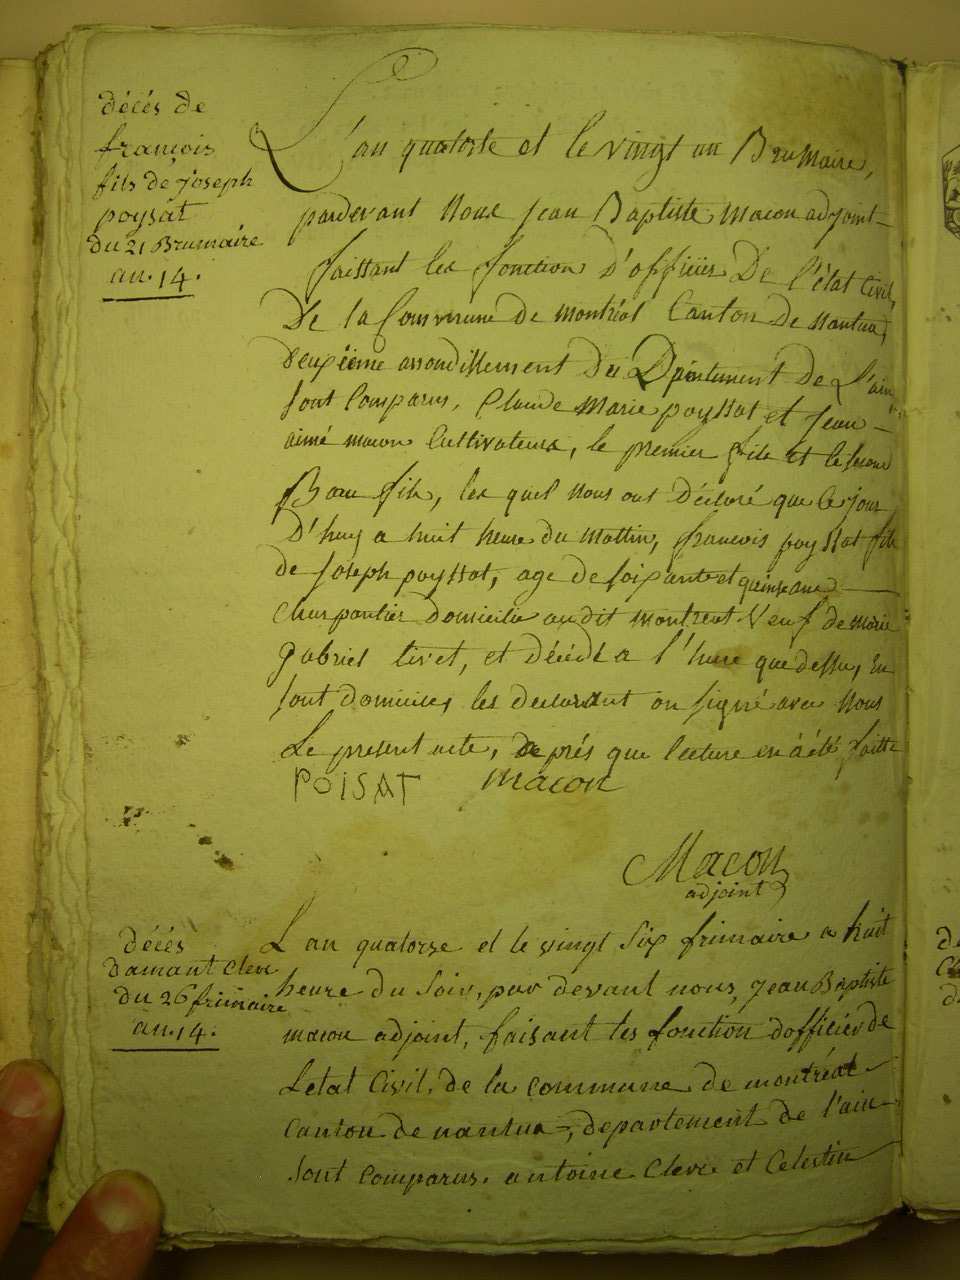 décés de
francois
fils de joseph
poysat
du 21 Brumaire
an. 14.
L'an quatorse et le vingt un Brumaire,
pardevant Nous jean Baptiste macon adjoint
faissant les fonction d'officier De l'état Civil,
De la Commune de montréal Canton De Nantua,
deuxiéme arrondissement du Dpartement De L'ain
sont Comparus, Claude Marie poyssat et Jean
aimé macon Cultivateurs, le premier fils et le second
Beau fils, les quel Nous ont Déclaré que Ce jour
D'huy a huit heure du Mattin, francois poyssat fils
de Joseph poyssat, age de soixante et quinse ans
Charpantier Domicilie au dit montreal Veuf de marie
gabriel tivet, et décédé a l'heure que dessus, En
sont domicile, les declarant on signé avec Nous
Le present acte, de prés que lecture en à été faitte
POISAT macon
Macon
adjoint
décés
damant Clerc
du 26 frimaire
an. 14.
L an quatorze et le vingt Six frimaire a huit
heure du Soir, par devant nous, Jean Baptiste
macon adjoint, faisant les fonction dofficier de
Letat Civil, de la commune de montréal
Canton de nantua, departement de l'ain
Sont Comparus. antoine Clerc et Celestin